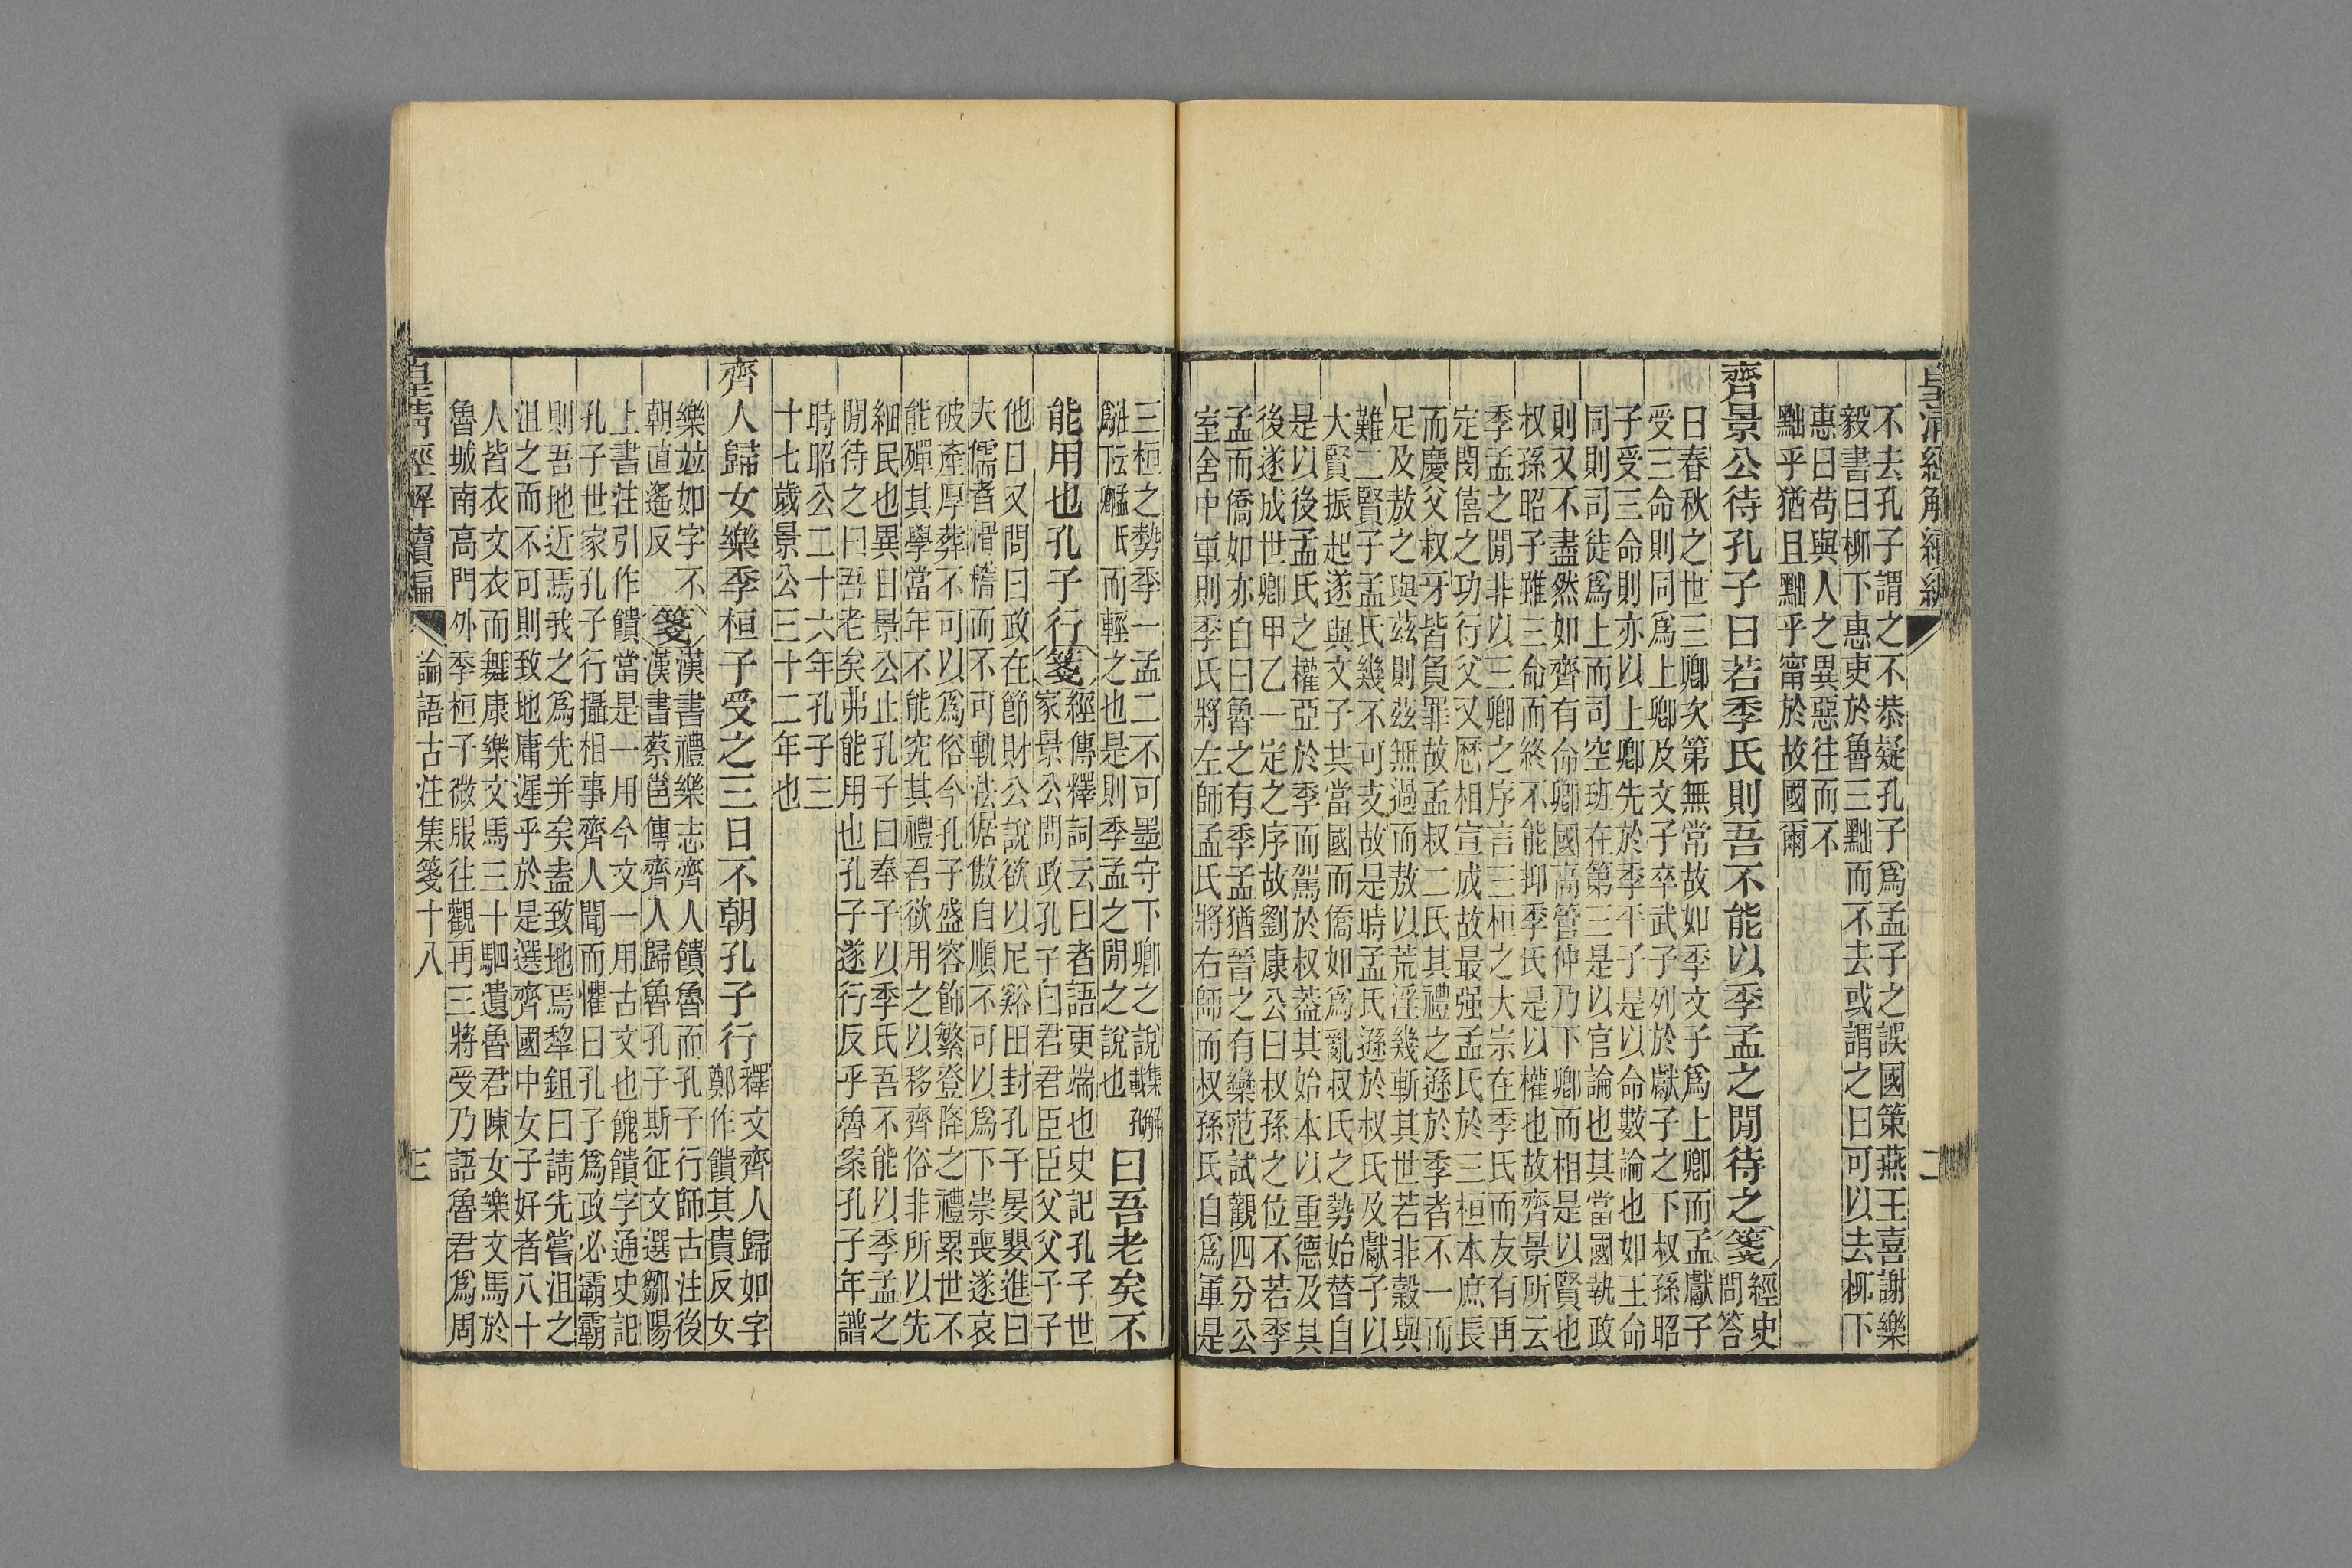 皇清經解續編
二
不去孔子謂之不恭疑孔子爲孟子之誤國策燕王喜謝樂
毅書曰柳下惠吏於魯三黜而不去或謂之曰可以去柳下
惠曰苟與人之異惡往而不
黜乎猶且黜乎甯於故國爾
齊景公待孔子曰若季氏則吾不能以季孟之閒待之箋
經史
問答
曰春秋之世三卿次第無常故如季文子爲上卿而孟獻子
受三命則同爲上卿及文子卒武子列於獻子之下叔孫昭
子受三命則亦以上卿先於季平子是以命數論也如王命
同則司徒爲上而司空班在第三是以官論也其當國執政
則又不盡然如齊有命卿國高管仲乃下卿而相是以賢也
叔孫昭子雖三命而終不能抑季氏是以權也故齊景所云
季孟之閒非以三卿之序言三桓之大宗在季氏而友有再
定閔僖之功行父又厯相宣成故最强孟氏於三桓本庶長
而慶父叔牙皆負罪故孟叔二氏其禮之遜於季者不一而
足及敖之與茲則茲無過而敖以荒淫幾斬其世若非穀與
難二賢子孟氏幾不可支故是時孟氏遜於叔氏及獻子以
大賢振起遂與文子共當國而僑如爲亂叔氏之勢始替自
是以後孟氏之權亞於季而駕於叔葢其始本以重德及其
後遂成世卿甲乙一定之序故劉康公曰叔孫之位不若季
孟而僑如亦自曰魯之有季孟猶晉之有欒范試觀四分公
室舍中軍則季氏將左師孟氏將右師而叔孫氏自爲軍是
三桓之勢季一孟二不可墨守下卿之說集解
而輕之也是則季孟之閒之說也
曰吾老矣不
能用也孔子行箋
經傳釋詞云曰者語更端也史記孔子世
家景公問政孔子曰君君臣臣父父子子
他日又問曰政在節財公說欲以尼谿田封孔子晏嬰進曰
夫儒者滑稽而不可軌法倨傲自順不可以爲下崇喪遂哀
破產厚葬不可以爲俗今孔子盛容飾繁登降之禮累世不
能殫其學當年不能究其禮君欲用之以移齊俗非所以先
細民也異日景公止孔子曰奉子以季氏吾不能以季孟之
閒待之曰吾老矣弗能用也孔子遂行反乎魯案孔子年譜
時昭公二十六年孔子三
十七歲景公三十二年也
齊人歸女樂季桓子受之三日不朝孔子行
釋文齊人歸如字
鄭作饋其貴反女
樂並如字不
朝直遙反
箋
漢書禮樂志齊人饋魯而孔子行師古注後
漢書蔡邕傳齊人歸魯孔子斯征文選鄒陽
上書注引作饋當是一用今文一用古文也餽饋字通史記
孔子世家孔子行攝相事齊人聞而懼曰孔子爲政必霸霸
則吾地近焉我之爲先并矣盍致地焉犂鉏曰請先嘗沮之
沮之而不可則致地庸遲乎於是選齊國中女子好者八十
人皆衣文衣而舞康樂文馬三十駟遺魯君陳女樂文馬於
魯城南高門外季桓子微服往觀再三將受乃語魯君爲周
皇清經解續編
論語古注集箋十八
三